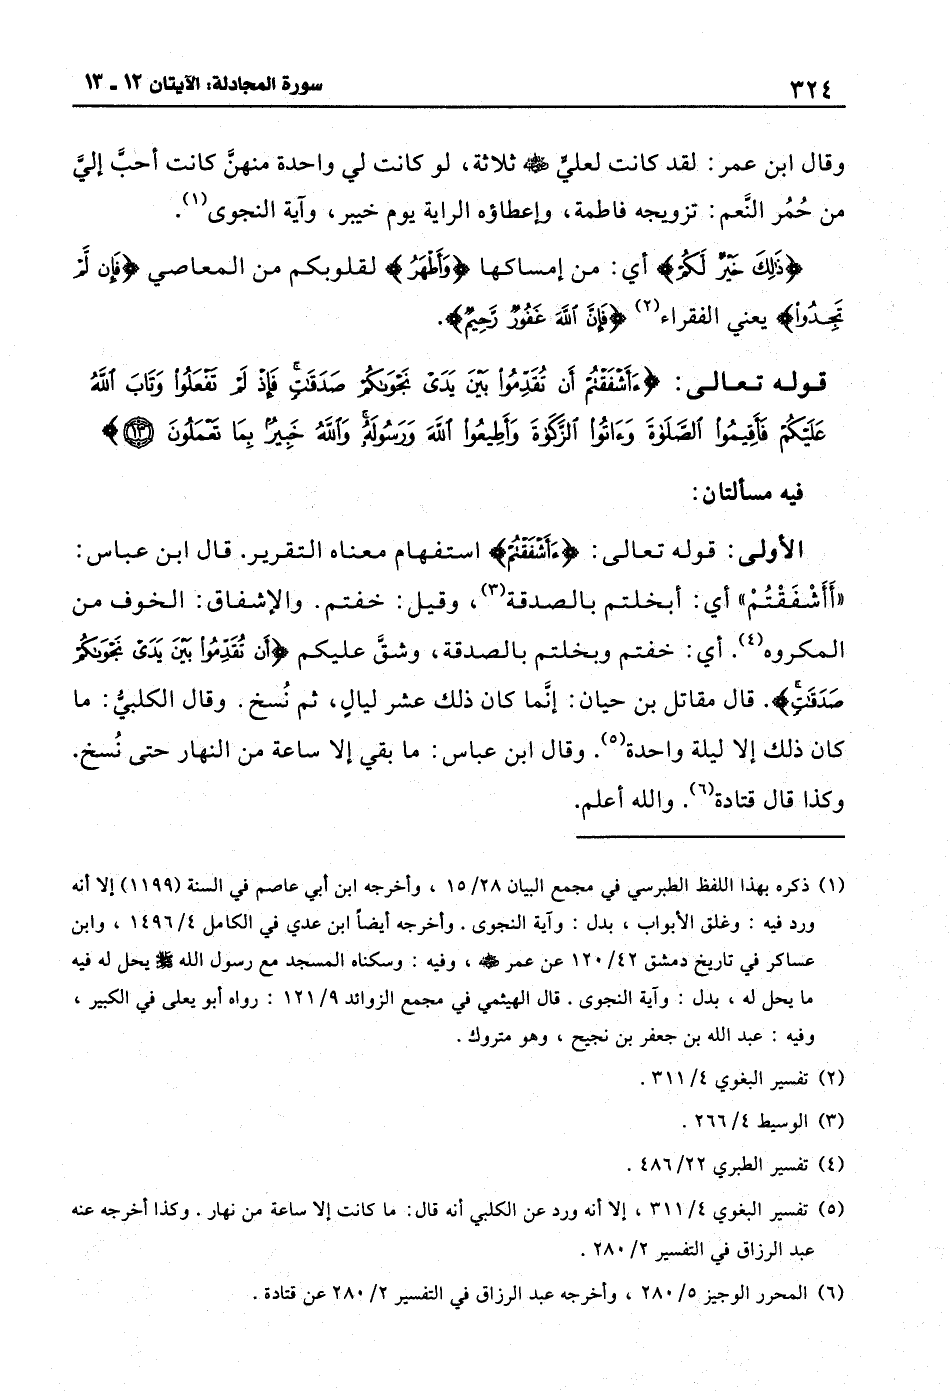 ٣٢٤
سورة المجادلة: الآيتان ١٢ ـ ١٣
وقال ابن عمر: لقد كانت لعليٍّ ﷺ ثلاثة، لو كانت لي واحدة منهنَّ كانت أحبَّ إليَّ
من حُمُر النَّعم: تزويجه فاطمة، وإعطاؤه الراية يوم خيبر، وآية النجوى(١).
﴿ذَٰلِكَ خَيْرٌ لَّكُمْ﴾ أي: من إمساكها ﴿وَأَطْهَرُ﴾ لقلوبكم من المعاصي ﴿فَإِن لَّمْ
تَجِدُواْ﴾ يعني الفقراء(٢) ﴿فَإِنَّ ٱللَّهَ غَفُورٌ رَّحِيمٌ﴾.
قوله تعالى: ﴿ءَأَشْفَقْتُمْ أَن تُقَدِّمُواْ بَيْنَ يَدَىْ نَجْوَىٰكُمْ صَدَقَٰتٍۚ فَإِذْ لَمْ تَفْعَلُواْ وَتَابَ ٱللَّهُ
عَلَيْكُمْ فَأَقِيمُواْ ٱلصَّلَوٰةَ وَءَاتُواْ ٱلزَّكَوٰةَ وَأَطِيعُواْ ٱللَّهَ وَرَسُولَهُۥۚ وَٱللَّهُ خَبِيرٌۢ بِمَا تَعْمَلُونَ ١٣﴾
فيه مسألتان:
الأولى: قوله تعالى: ﴿ءَأَشْفَقْتُمْ﴾ استفهام معناه التقرير. قال ابن عباس:
«أَأَشْفَقْتُمْ» أي: أبخلتم بالصدقة(٣)، وقيل: خفتم. والإشفاق: الخوف من
المكروه(٤). أي: خفتم وبخلتم بالصدقة، وشقَّ عليكم ﴿أَن تُقَدِّمُواْ بَيْنَ يَدَىْ نَجْوَىٰكُمْ
صَدَقَٰتٍۚ﴾. قال مقاتل بن حيان: إنَّما كان ذلك عشر ليالٍ، ثم نُسخ. وقال الكلبيُّ: ما
كان ذلك إلا ليلة واحدة(٥). وقال ابن عباس: ما بقي إلا ساعة من النهار حتى نُسخ.
وكذا قال قتادة(٦). والله أعلم.
(١) ذكره بهذا اللفظ الطبرسي في مجمع البيان ٢٨/ ١٥ ، وأخرجه ابن أبي عاصم في السنة (١١٩٩) إلا أنه
ورد فيه : وغلق الأبواب ، بدل : وآية النجوى . وأخرجه أيضاً ابن عدي في الكامل ٤/ ١٤٩٦ ، وابن
عساكر في تاريخ دمشق ٤٢/ ١٢٠ عن عمر ، وفيه : وسكناه المسجد مع رسول الله ﷺ يحل له فيه
ما يحل له ، بدل : وآية النجوى . قال الهيثمي في مجمع الزوائد ٩/ ١٢١ : رواه أبو يعلى في الكبير ،
وفيه : عبد الله بن جعفر بن نجيح ، وهو متروك .
(٢) تفسير البغوي ٤/ ٣١١ .
(٣) الوسيط ٤/ ٢٦٦ .
(٤) تفسير الطبري ٢٢/ ٤٨٦ .
(٥) تفسير البغوي ٤/ ٣١١ ، إلا أنه ورد عن الكلبي أنه قال: ما كانت إلا ساعة من نهار . وكذا أخرجه عنه
عبد الرزاق في التفسير ٢/ ٢٨٠ .
(٦) المحرر الوجيز ٥/ ٢٨٠ ، وأخرجه عبد الرزاق في التفسير ٢/ ٢٨٠ عن قتادة .